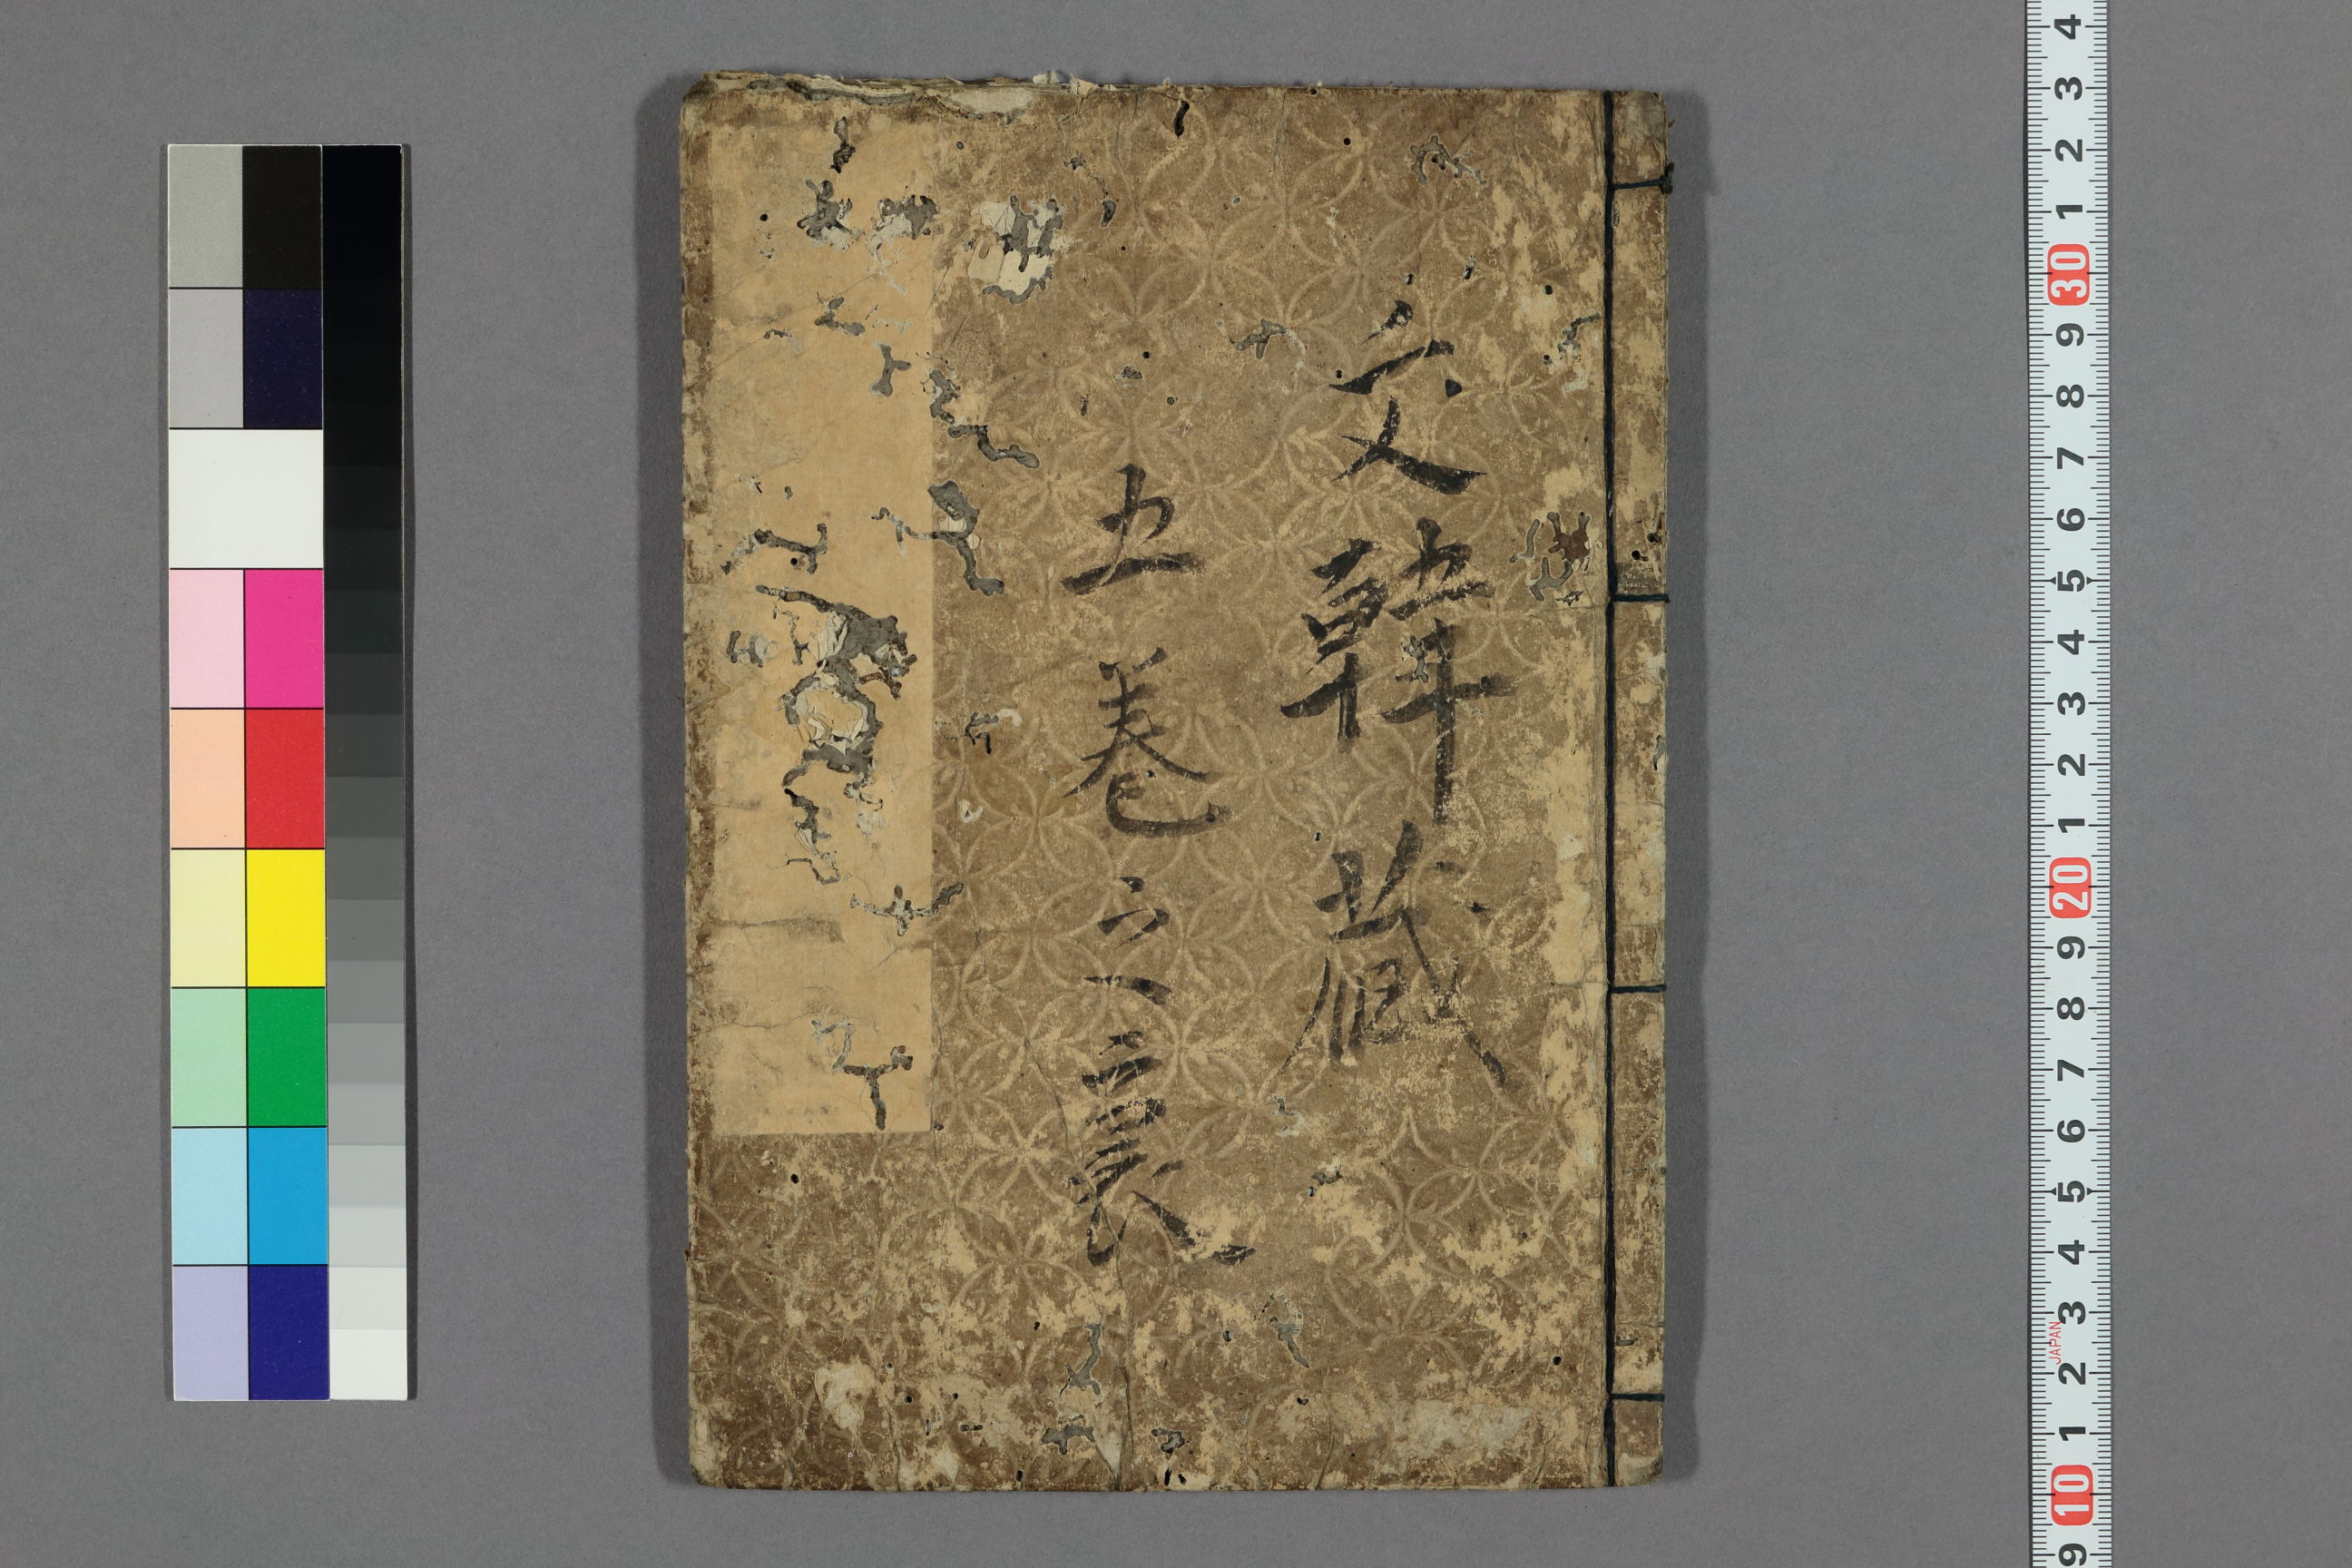 交韓蔵
五巻六裏
4 3 2 1 30 9 8 7 6 5 4 3 2 1 20 9 8 7 6 5 4 3 2 1 10 9
JAPAN